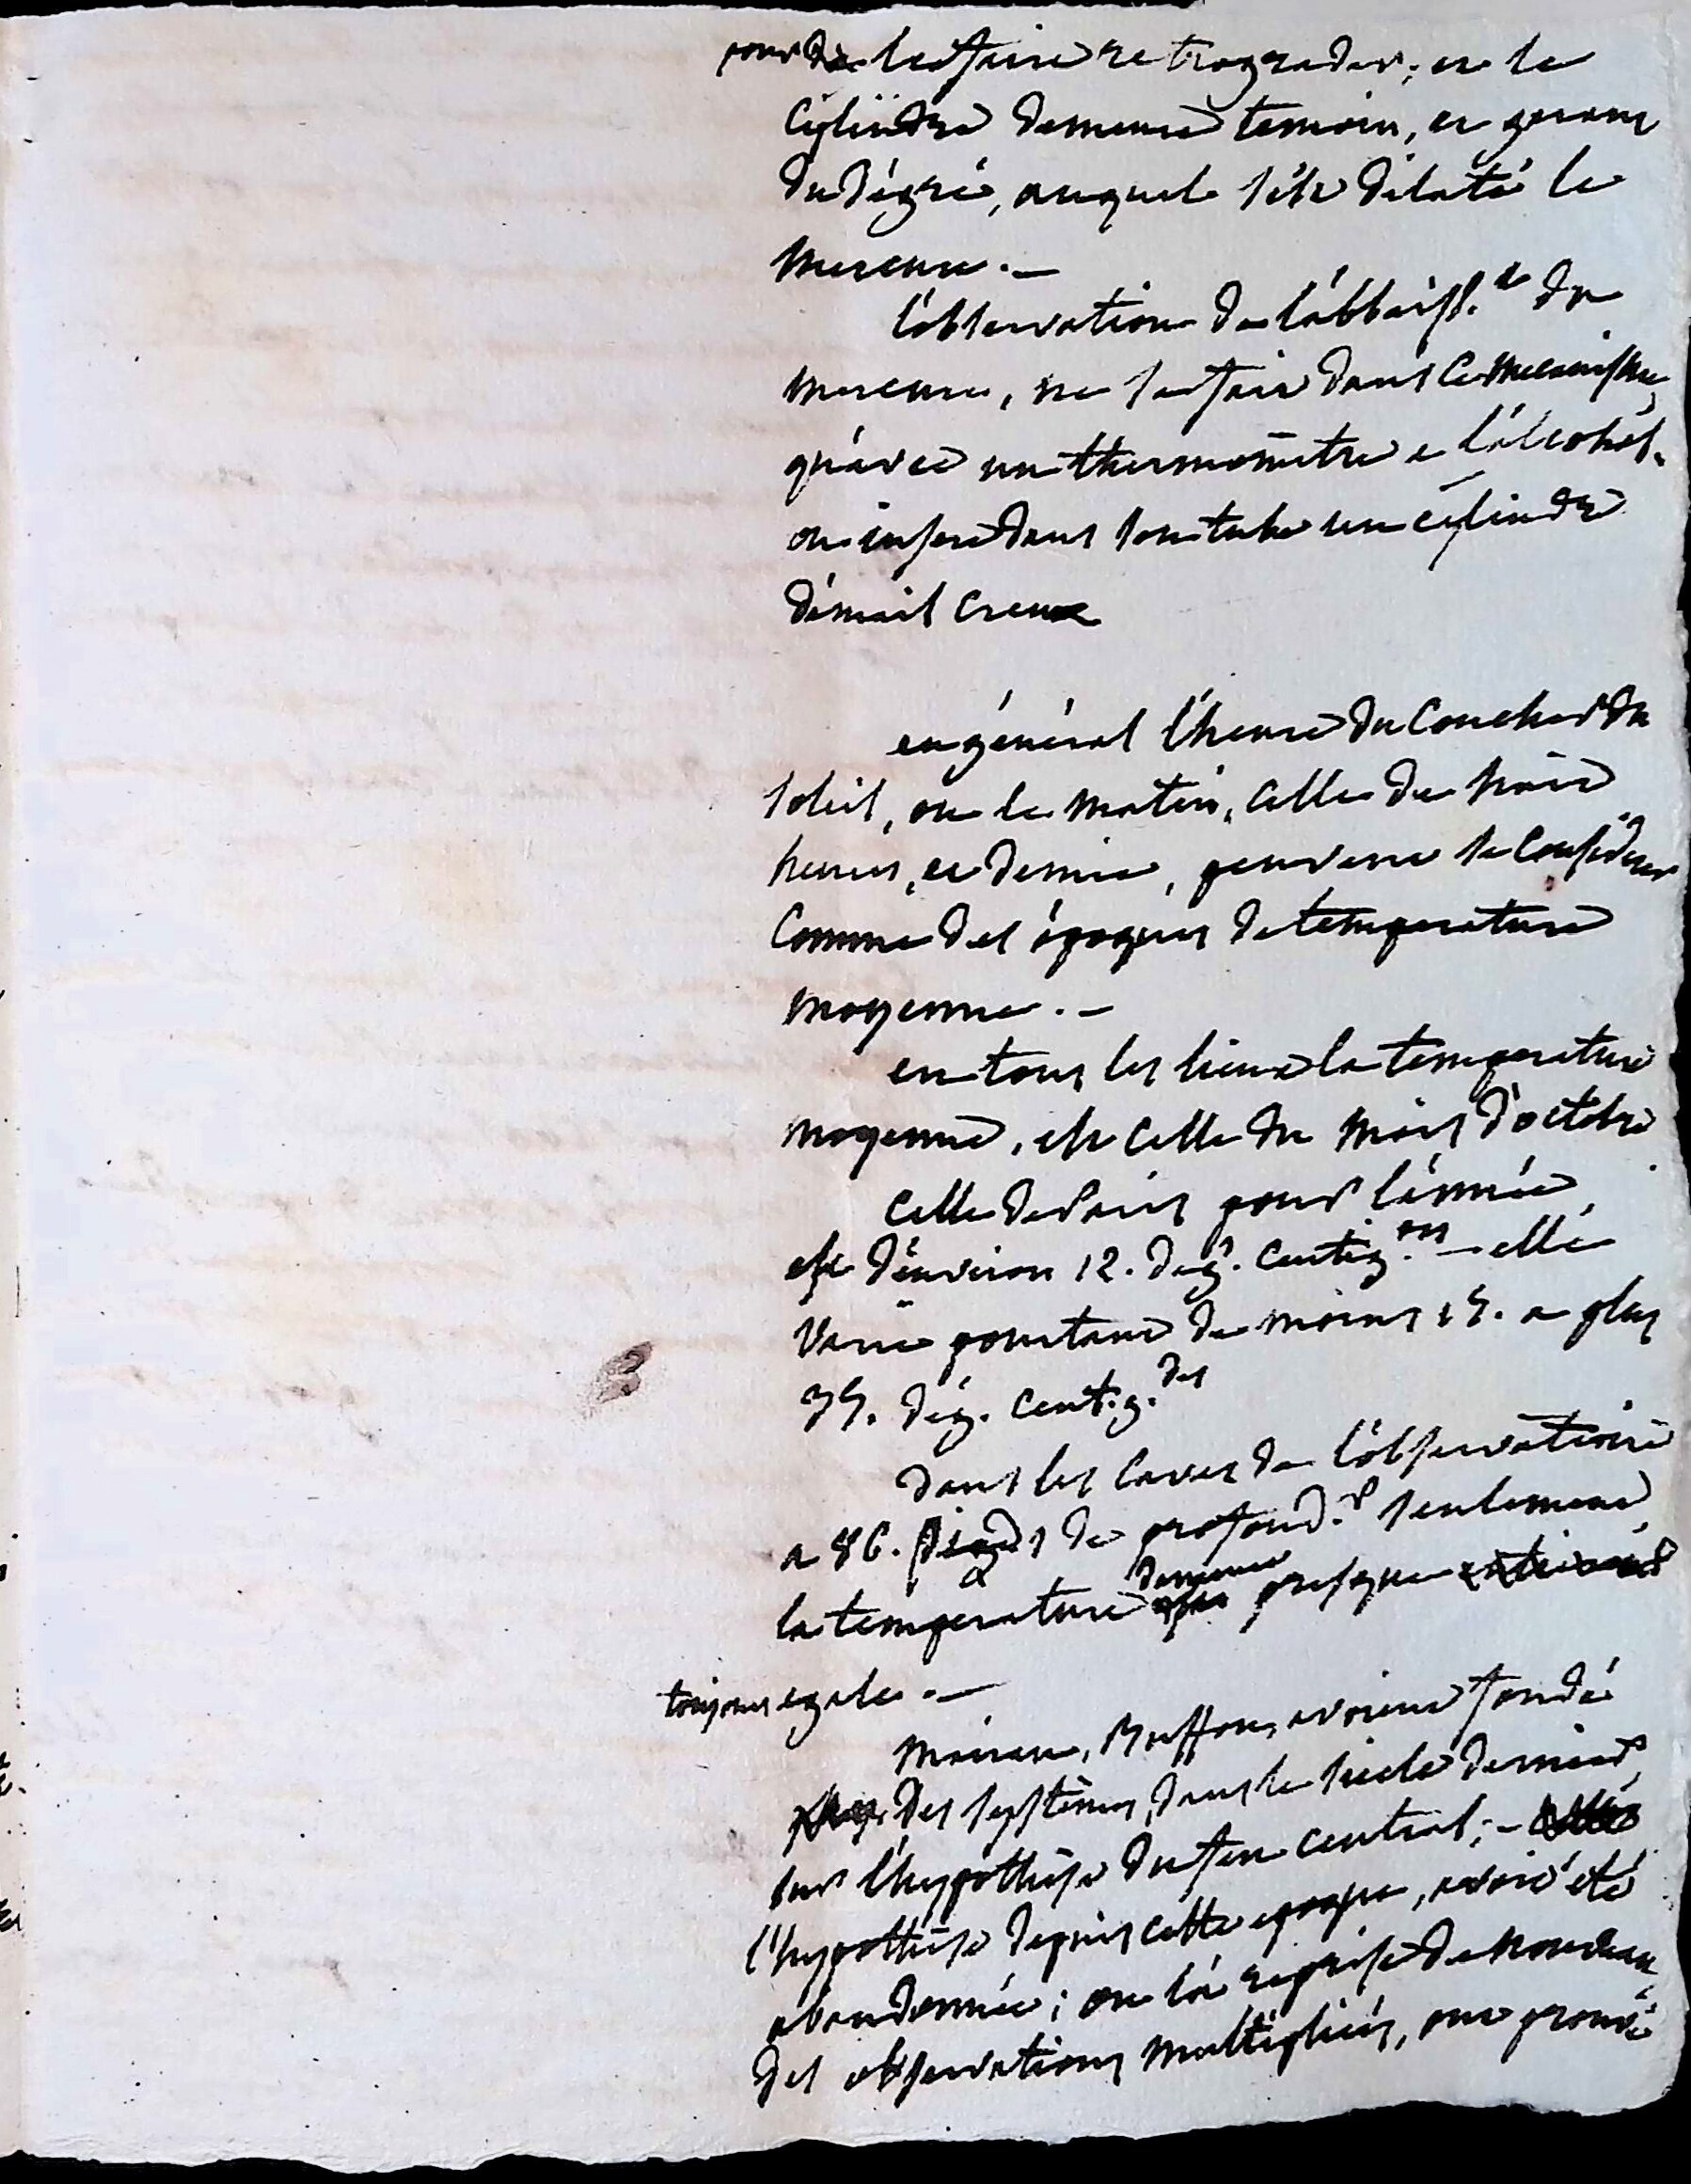 pour le faire retrograder; et le
Cylindre demeure temoin, et garant
du dégré, auquel s'est dilaté le
mercure. —
l'observation de l'abbaiss.t du
mercure, ne se fait dans ce mecanisme,
qu'avec un thermomètre a l'alcohol.
on insere dans son tube un cylindre
d'émail creux
en général l'heure du Coucher du
soleil, ou le matin, celle de huit
heures, et demie, peuvent se considerer
Comme des époques de temperature
moyenne. —
en tous les lieux la temperature
moyenne, est celle du mois d'octobre
celle de Paris pour l'année,
est d'environ 12. deg. centig.es — elle
varie pourtant de moins 15. a plus
35. dég. cent.g.des
dans les caves de l'observatoire
a 86. pieds de profond.r seulement,
la temperature demeure presque
toujours egale. —
Mairan, Buffon, avoient fondé
des systèmes, dans le siecle dernier,
sur l'hypothèse du feu central; —
l'hypothèse depuis cette epoque, avoit été
abandonnée; on l'a reprise de nouveau,
des observations multipliées, ont prouvé